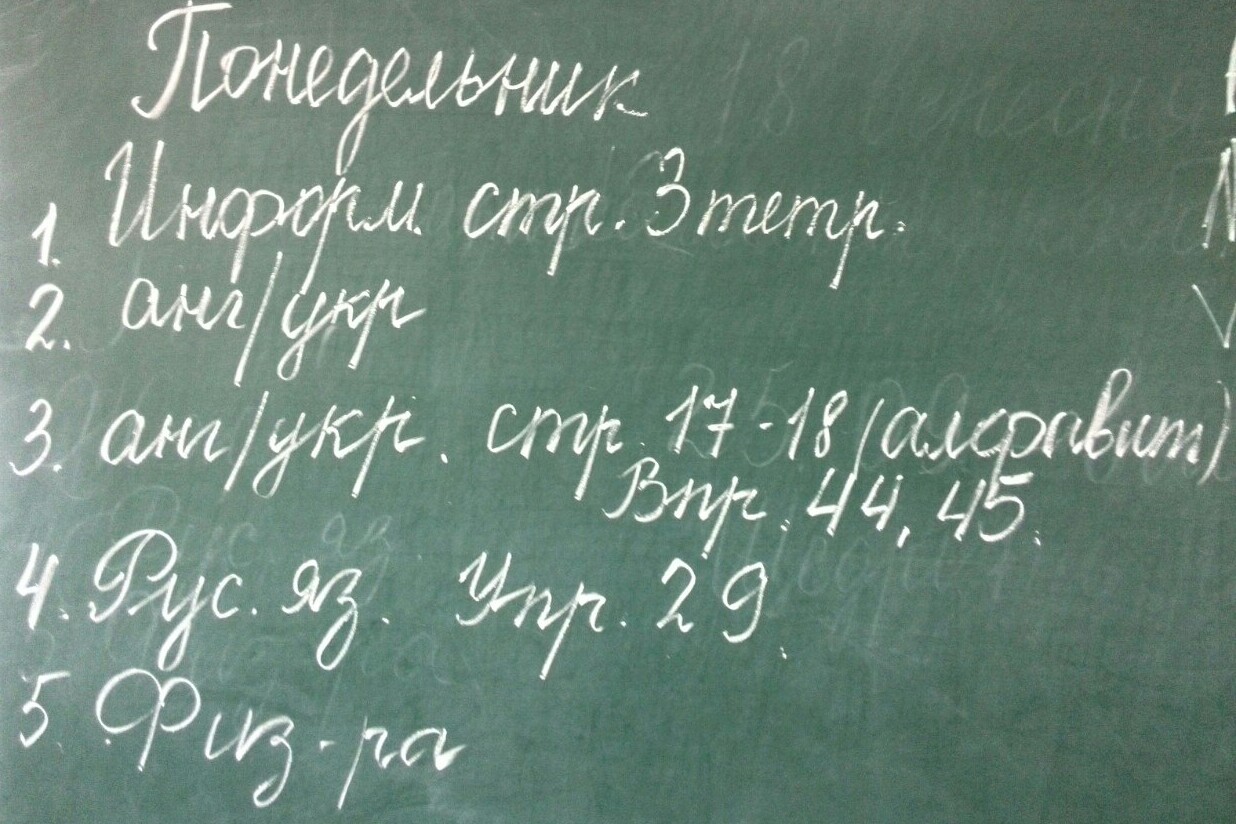 Понедельник
1. Информ. стр. 3 тетр.
2. анг/укр
3. анг/укр. стр. 17-18 (алфавит)
Впр. 44, 45.
4. Рус. яз. Упр. 29.
5. Физ-ра